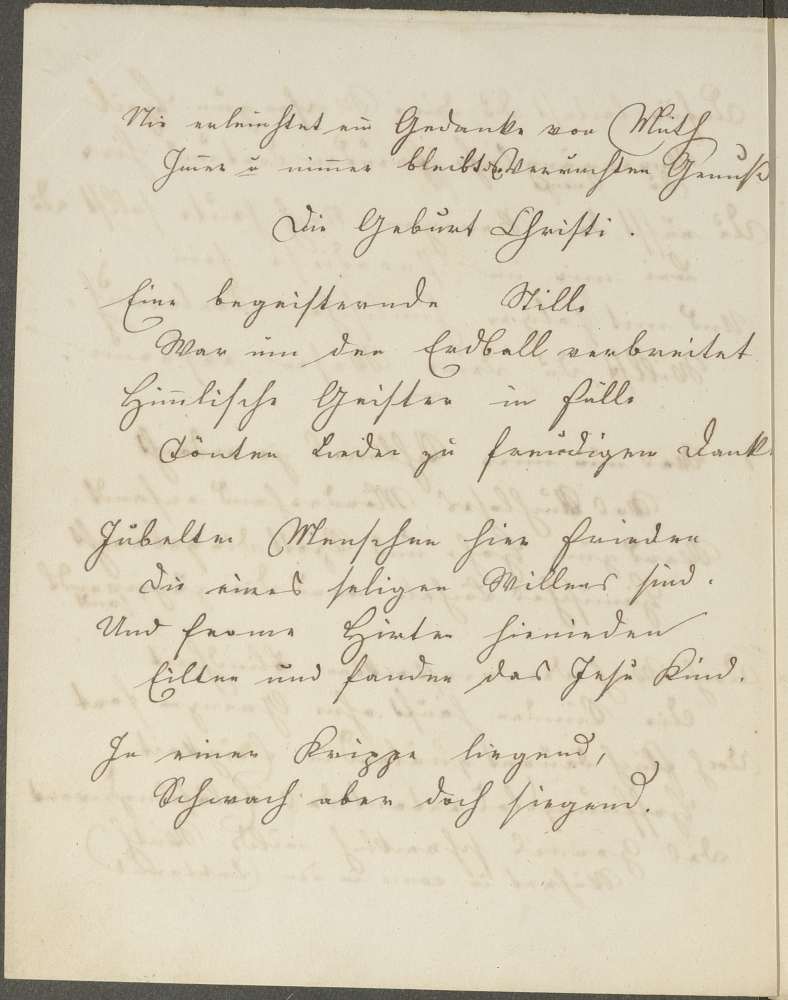 Nie erleuchtet ein Gedanke von Muth
Im̄er u nim̄er bleibt der Verruchten Genuß
Die Geburt Christi.
Eine begeisternde Stille
War um den Erdball verbreitet
Him̄lische Geister in Fülle
Tönten Lieder zu freudigem Dank
Jubelten Menschen hier Frieden
Die eines seligen Willens sind.
Und from̄e Hirten hienieden
Eilten und fanden das Jesu Kind.
In einer Krippe liegend,
Schwach aber doch siegend.